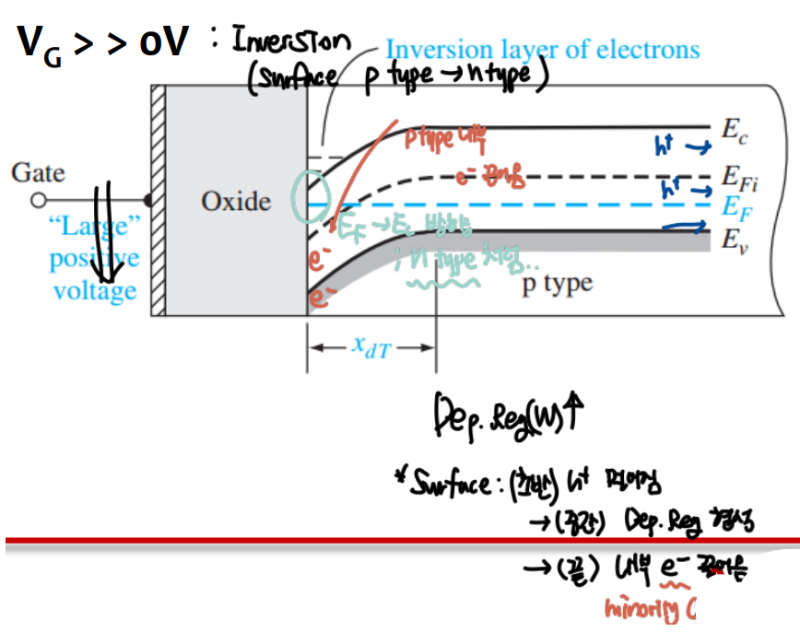 V_G >> 0V : Inversion
(Surface p type → n type)
Inversion layer of electrons
p type 내부
E_c
h⁺ →
Gate
e⁻ 끌어옴
E_Fi
h⁺ →
Oxide
E_F
"Large"
positive
voltage
E_F → E_c 방향
E_v
e⁻
; n type 처럼..
e⁻
p type
x_dT
Dep. Reg(W)↑
* Surface : (초반) h⁺ 멀어짐
→ (중간) Dep. Reg 형성
→ (끝) 내부 e⁻ 끌어옴
minority C